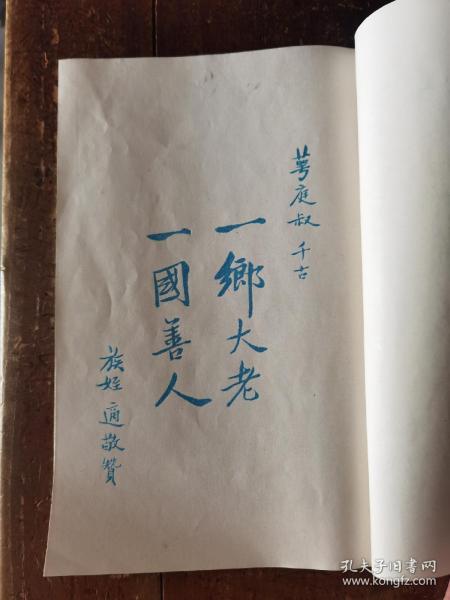 萼庭叔 千古
一鄉大老
一國善人
族姪 適敬贊
孔夫子旧书网
www.kongfz.com